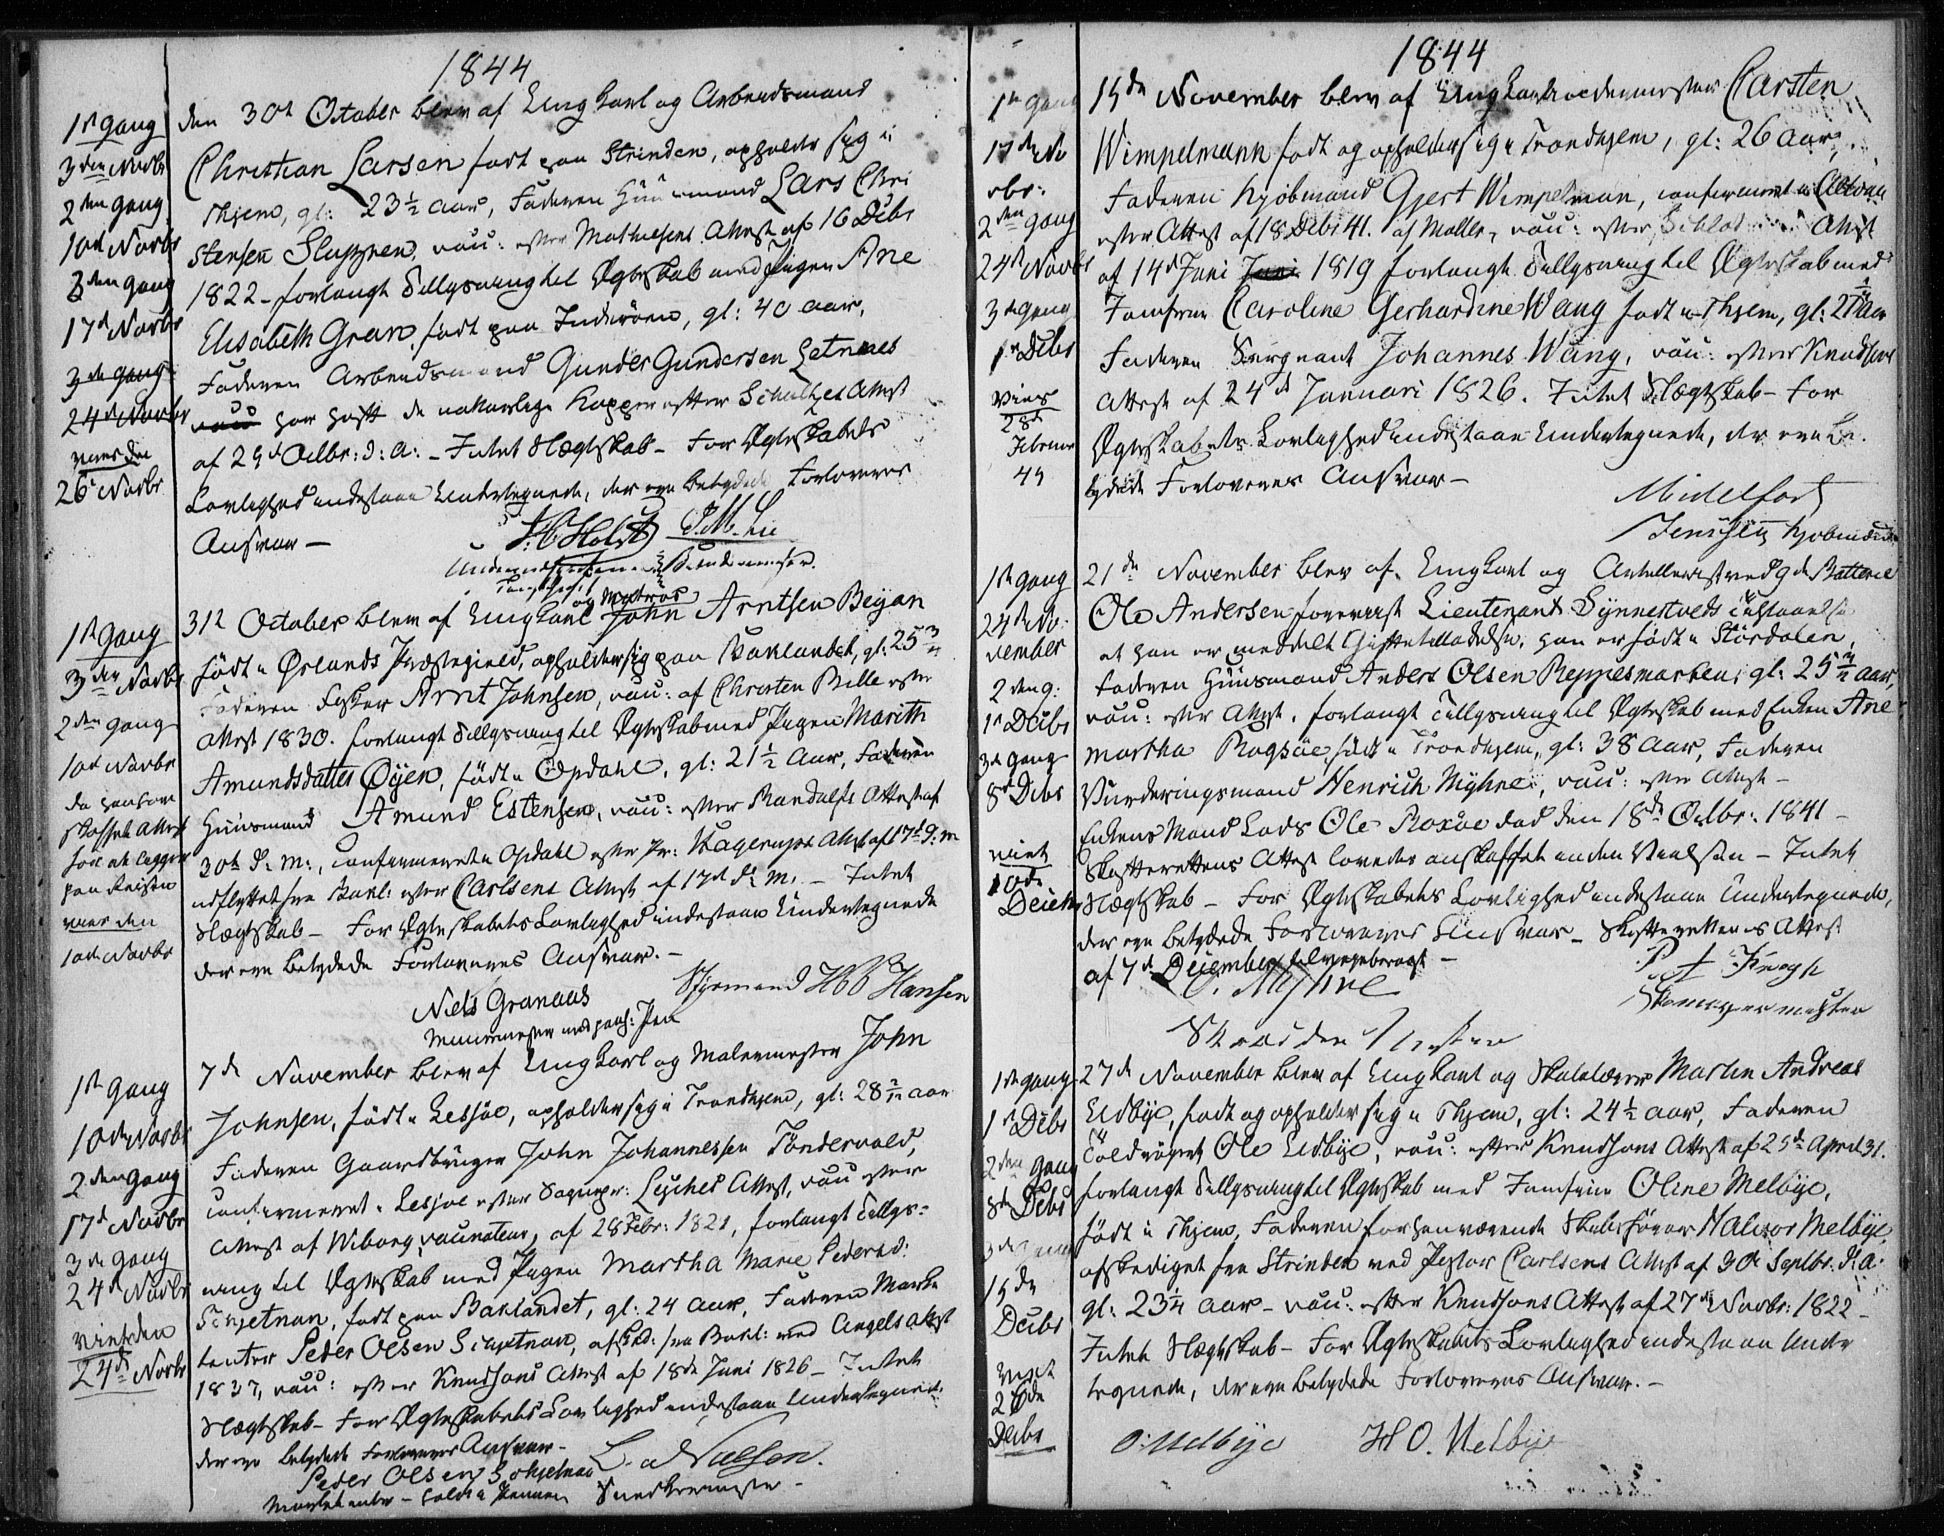 1844
1ste Gang
3den Novbr
2den Gang
10de Novbr
3den Gang
17de Novbr
3de Gang
24de Novbr
viet den
26de Novbr
den 30te October blev af Ungkarl og Arbeidsmand
Christian Larsen født paa Strinden, opholder sig i
Thjem, gl: 23½ Aar, Faderen Huusmand Lars Chri
stensen Sluppen, vacc: efter Mathesens Attest af 16 Debr
1822 – forlangt Tillysning til Ægteskab med Pigen Ane
Elisabeth Gran, født paa Inderöen, gl: 40 Aar,
Faderen Arbeidsmand Gunder Gundersen Letnæs
vacc har havt de naturlige Kopper efter Schultzes Attest
af 29de Octbr: d: A: – Intet Slægtskab – For Ægteskabets
Lovlighed indestaae Undertegnede, der ere betydede Forloveres
Ansvar –
H Holst P.M. Lie
1ste Gang
3den Novbr
2den Gang
10de Novbr
da han har
skaffet Attest
for at ligge
paa Reisen
viet den
10de Novbr
og Matros
31te October blev af Ungkarl John Arntsen Bejan
født i Ørlands Præstegield, opholder sig paa Baklandet, gl: 25
Faderen Fisker Arnt Johnsen, vacc: af Christen Bille efter
Attest 1830. forlangt Tillysning til Ægteskab med Pigen Marith
Amundsdatter Øyen, født i Opdahl, gl: 21½ Aar, Faderen
Huusmand Amund Estensen, vacc: efter Randulfs Attest af
30te d: M:, confirmeret i Opdahl efter Pr: Hagerups Attest af 17de d: M
udflyttet fra Bakl: efter Carlsens Attest af 17de d: M. – Intet
Slægtskab – For Ægteskabets Lovlighed indestaae Undertegnede
der ere betydede Forloveres Ansvar. –
Niels Granaas Styrmand HB Hansen
Muurmester
1ste Gang
10de Novbr
2den Gang
17de Novbr
3de Gang
24de Novbr
viet den
24de Novbr
7de November blev af Ungkarl og Malermester John
Johnsen, født i Lessöe, opholder sig i Trondhjem, gl: 28 Aar
Faderen Gaardbruger John Johannessen Töndervold,
confirmeret i Lessöe efter Sognepr: Lyches Attest, vacc efter
Attest af Wiborg, vaccinateur, af 28 Febr: 1821, forlangt Tillys-
ning til Ægteskab med Pigen Martha Marie Pedersd:
Schjetnan, født paa Baklandet, gl: 24 Aar, Faderen Marke
tenter Peder Olsen Schjetnan, afsked: fra Bakl: med Angels Attest
1837, vacc: efter Knudsons Attest af 18de Juni 1826 – Intet
Slægtskab – For Ægteskabets Lovlighed indestaae Undertegnede
der ere betydede Forloveres Ansvar –
Peder Olsen Schjetnan L. Nielsen.
Marketenter Snedkermester –
1844
1ste Gang
17de No
vbr:
2den Gang
24de Novbr
3de Gang
1ste Debr
viet
28de
Februar
45
15de November blev af Ungkarl Carsten
Wimpelmann født og opholder sig i Trondhjem, gl: 26 Aar,
Faderen Kjöbmand Gjert Wimpelman, confirmeret i
efter Attest af 18 Debr 41. af Møller, vacc: efter Attest
af 14de Juni Juni 1819 forlangt Tillysning til Ægteskab med
Jomfrue Caroline Gerhardine Wang født i Thjem, gl: 21 Aar
Faderen Sergeant Johannes Wang, vacc: efter Knudsons
Attest af 24de Januari 1826. Intet Slægtskab – For
Ægteskabets Lovlighed indestaae Undertegnede, der ere be
tydede Forloveres Ansvar –
Midelfart
Jenssen Kjöbmænd
1ste Gang
24de No-
vember
2den G:
1ste Decbr
3de Gang
8de Debr
viet
10de
Decbr
21de November blev af Ungkarl og Artillerist ved 9de Batterie
Ole Andersen foreviist Lieutenant Synnestvedts Tilstaaelse
at han er meddelt Giftetilladelse, han er født i Stördalen,
Faderen Huusmand Anders Olsen Reppesmarken, gl: 25 Aar,
vacc: efter Attest. forlangt Tillysning til Ægteskab med Enken Ane
Martha Rogsöe, født i Trondhjem, gl: 38 Aar, Faderen
Vurderingsmand Henrich Myhre, vacc: efter Attest –
Enkens Mand Lods Ole Roxöe död den 18de Octbr: 1841 –
Skifterettens Attest loves anskaffet inden Vielsen – Intet
Slægtskab – For Ægteskabets Lovlighed indestaae Undertegnede,
der ere betydede Forloveres Ansvar – Skifterettens Attest
af 7de December tilveiebragt –
Myhre P. A. Krogh
Skomagermester
1ste Gang
1ste Debr
2den Gang
8de Debr
3de Gang
15de
Decbr
viet
26de
Debr
27de November blev af Ungkarl og Skolelærer Martin Andreas
Eidbye, født og opholder sig i Thjem, gl: 24½ Aar, Faderen
Toldrorer Ole Eidbye, vacc: efter Knudsons Attest af 25de April 31.
forlangt Tillysning til Ægteskab med Jomfrue Oline Melbye,
født i Thjem, Faderen forhenværende Skibsförer Halvor Melbye,
afskediget fra Strinden med Pastor Carlsens Attest af 30te Septbr: d: A:
gl: 23¼ Aar – vacc: efter Knudsons Attest af 27de Novbr: 1822 –
Intet Slægtskab – For Ægteskabets Lovlighed indestaae Under
tegnede, der ere betydede Forloveres Ansvar. –
O: Melbye H O. Melbye